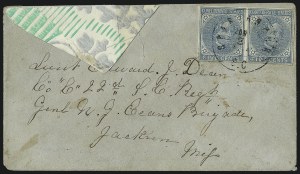 Lieut Edward J. Dean
Co "C" 22d S. C. Regt
Genl N. G. Evans Brigade,
Jackson
Miss